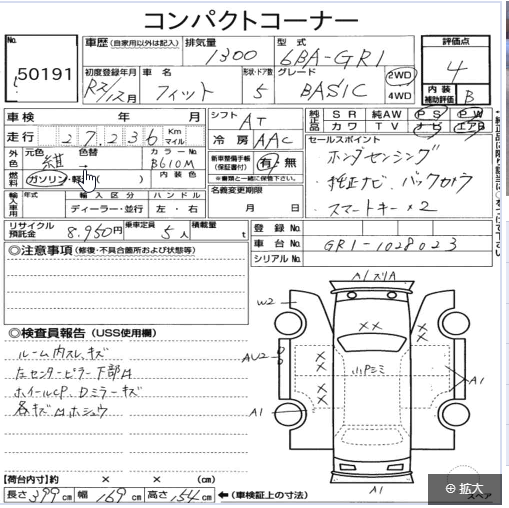 コンパクトコーナー
No. 50191
車歴 (自家用以外は記入) 排気量 1300 型式 6BA-GR1
評価点 4
内装補助評価 B
初度登録年月 R2/12月 車名 フィット 形状・ドア数 5 グレード BASIC 2WD 4WD
車検 年 月
走行 27,236 Km マイル
シフト AT
冷房 AAC
純正品 SR 純AW PS PW
カワ TV ナビ エアB
セールスポイント
ホンダセンシング
・純正ナビ、バックカメラ
・スマートキー×2
外色 元色 紺 色替 → カラーNo. B610M
燃料 ガソリン・軽 ( ) 内装色
新車整備手帳 (保証書付) 有・無
※書類と一緒に保管下さい。
名義変更期限
月 日
輸入車用 年式 輸入区分 ハンドル
ディーラー・並行 左・右
リサイクル預託金 8,950円 乗車定員 5人 積載量 t
登録No.
車台No. GR1-1028023
シリアルNo.
◎注意事項 (修復・不具合箇所および状態等)
◎検査員報告 (USS使用欄)
ルーム内スレ、キズ
左センターピラー下部
ホイールCP、Dミラーキズ
各キズ
ホシュウ
A1 スリA
W2
××
×
×
AU2
×
×
小Pミミ
×
×
A1
A1
A1
【荷台内寸】約 × × (cm)
長さ 399 cm 幅 169 cm 高さ 154 cm ←(車検証上の寸法)
スペア
拡大